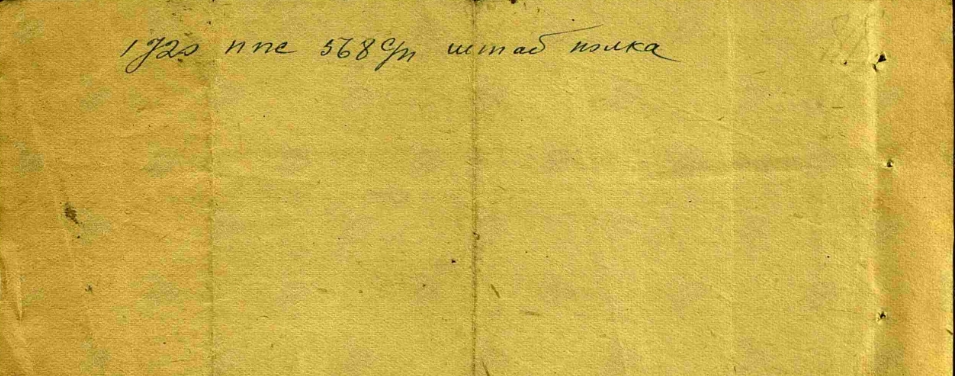 1720 ппс 568 сп штаб полка